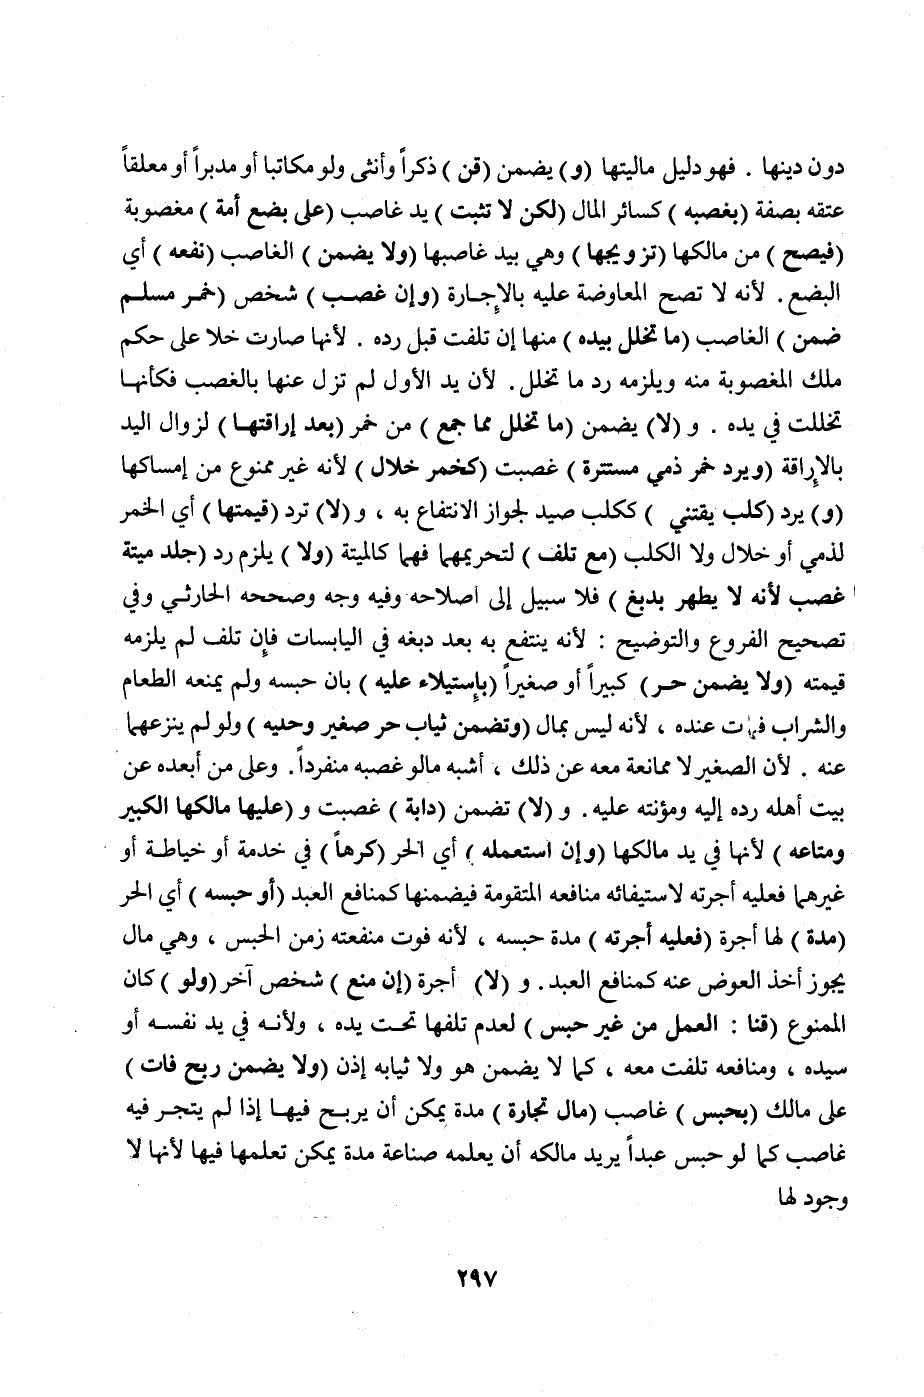 دون دينها . فهو دليل ماليتها (و) يضمن (قن ) ذكراً وأنثى ولو مكاتبا أو مدبراً أو معلقاً
عتقه بصفة (بغصبه ) كسائر المال (لكن لا تثبت ) يد غاصب (على بضع أمة ) مغصوبة
(فيصح ) من مالكها (تزويجها) وهي بيد غاصبها (ولا يضمن ) الغاصب (نفعه ) أي
البضع . لأنه لا تصح المعاوضة عليه بالإجارة (وإن غصب ) شخص (خمر مسلم
ضمن ) الغاصب (ما تخلل بيده ) منها إن تلفت قبل رده . لأنها صارت خلا على حكم
ملك المغصوبة منه ويلزمه رد ما تخلل . لأن يد الأول لم تزل عنها بالغصب فكأنها
تخللت في يده . و (لا) يضمن (ما تخلل مما جمع ) من خمر (بعد إراقتها ) لزوال اليد
بالإراقة (ويرد خمر ذمي مستترة ) غصبت (كخمر خلال ) لأنه غير ممنوع من إمساكها
(و) يرد (كلب يقتني ) ككلب صيد لجواز الانتفاع به ، و (لا) ترد (قيمتها ) أي الخمر
لذمي أو خلال ولا الكلب (مع تلف ) لتحريمهما فهما كالميتة (ولا ) يلزم رد (جلد ميتة
غصب لأنه لا يطهر بدبغ ) فلا سبيل إلى اصلاحه وفيه وجه وصححه الحارثي وفي
تصحيح الفروع والتوضيح : لأنه ينتفع به بعد دبغه في اليابسات فإن تلف لم يلزمه
قيمته (ولا يضمن حر ) كبيراً أو صغيراً (بإستيلاء عليه ) بان حبسه ولم يمنعه الطعام
والشراب فمات عنده ، لأنه ليس بمال (وتضمن ثياب حر صغير وحليه ) ولو لم ينزعهما
عنه . لأن الصغير لا ممانعة معه عن ذلك ، أشبه مالو غصبه منفرداً . وعلى من أبعده عن
بيت أهله رده إليه ومؤنته عليه . و (لا) تضمن (دابة ) غصبت و (عليها مالكها الكبير
ومتاعه ) لأنها في يد مالكها (وإن استعمله ) أي الحر (كرهاً ) في خدمة أو خياطة أو
غيرهما فعليه أجرته لاستيفائه منافعه المتقومة فيضمنها كمنافع العبد (أو حبسه ) أي الحر
(مدة ) لها أجرة (فعليه أجرته ) مدة حبسه ، لأنه فوت منفعته زمن الحبس ، وهي مال
يجوز أخذ العوض عنه كمنافع العبد . و (لا) أجرة (إن منع ) شخص آخر (ولو ) كان
الممنوع (قنا : العمل من غير حبس ) لعدم تلفها تحت يده ، ولأنه في يد نفسه أو
سيده ، ومنافعه تلفت معه ، كما لا يضمن هو ولا ثيابه إذن (ولا يضمن ربح فات )
على مالك (بحبس ) غاصب (مال تجارة ) مدة يمكن أن يربح فيها إذا لم يتجر فيه
غاصب كما لو حبس عبداً يريد مالكه أن يعلمه صناعة مدة يمكن تعلمها فيها لأنها لا
وجود لها
٢٩٧